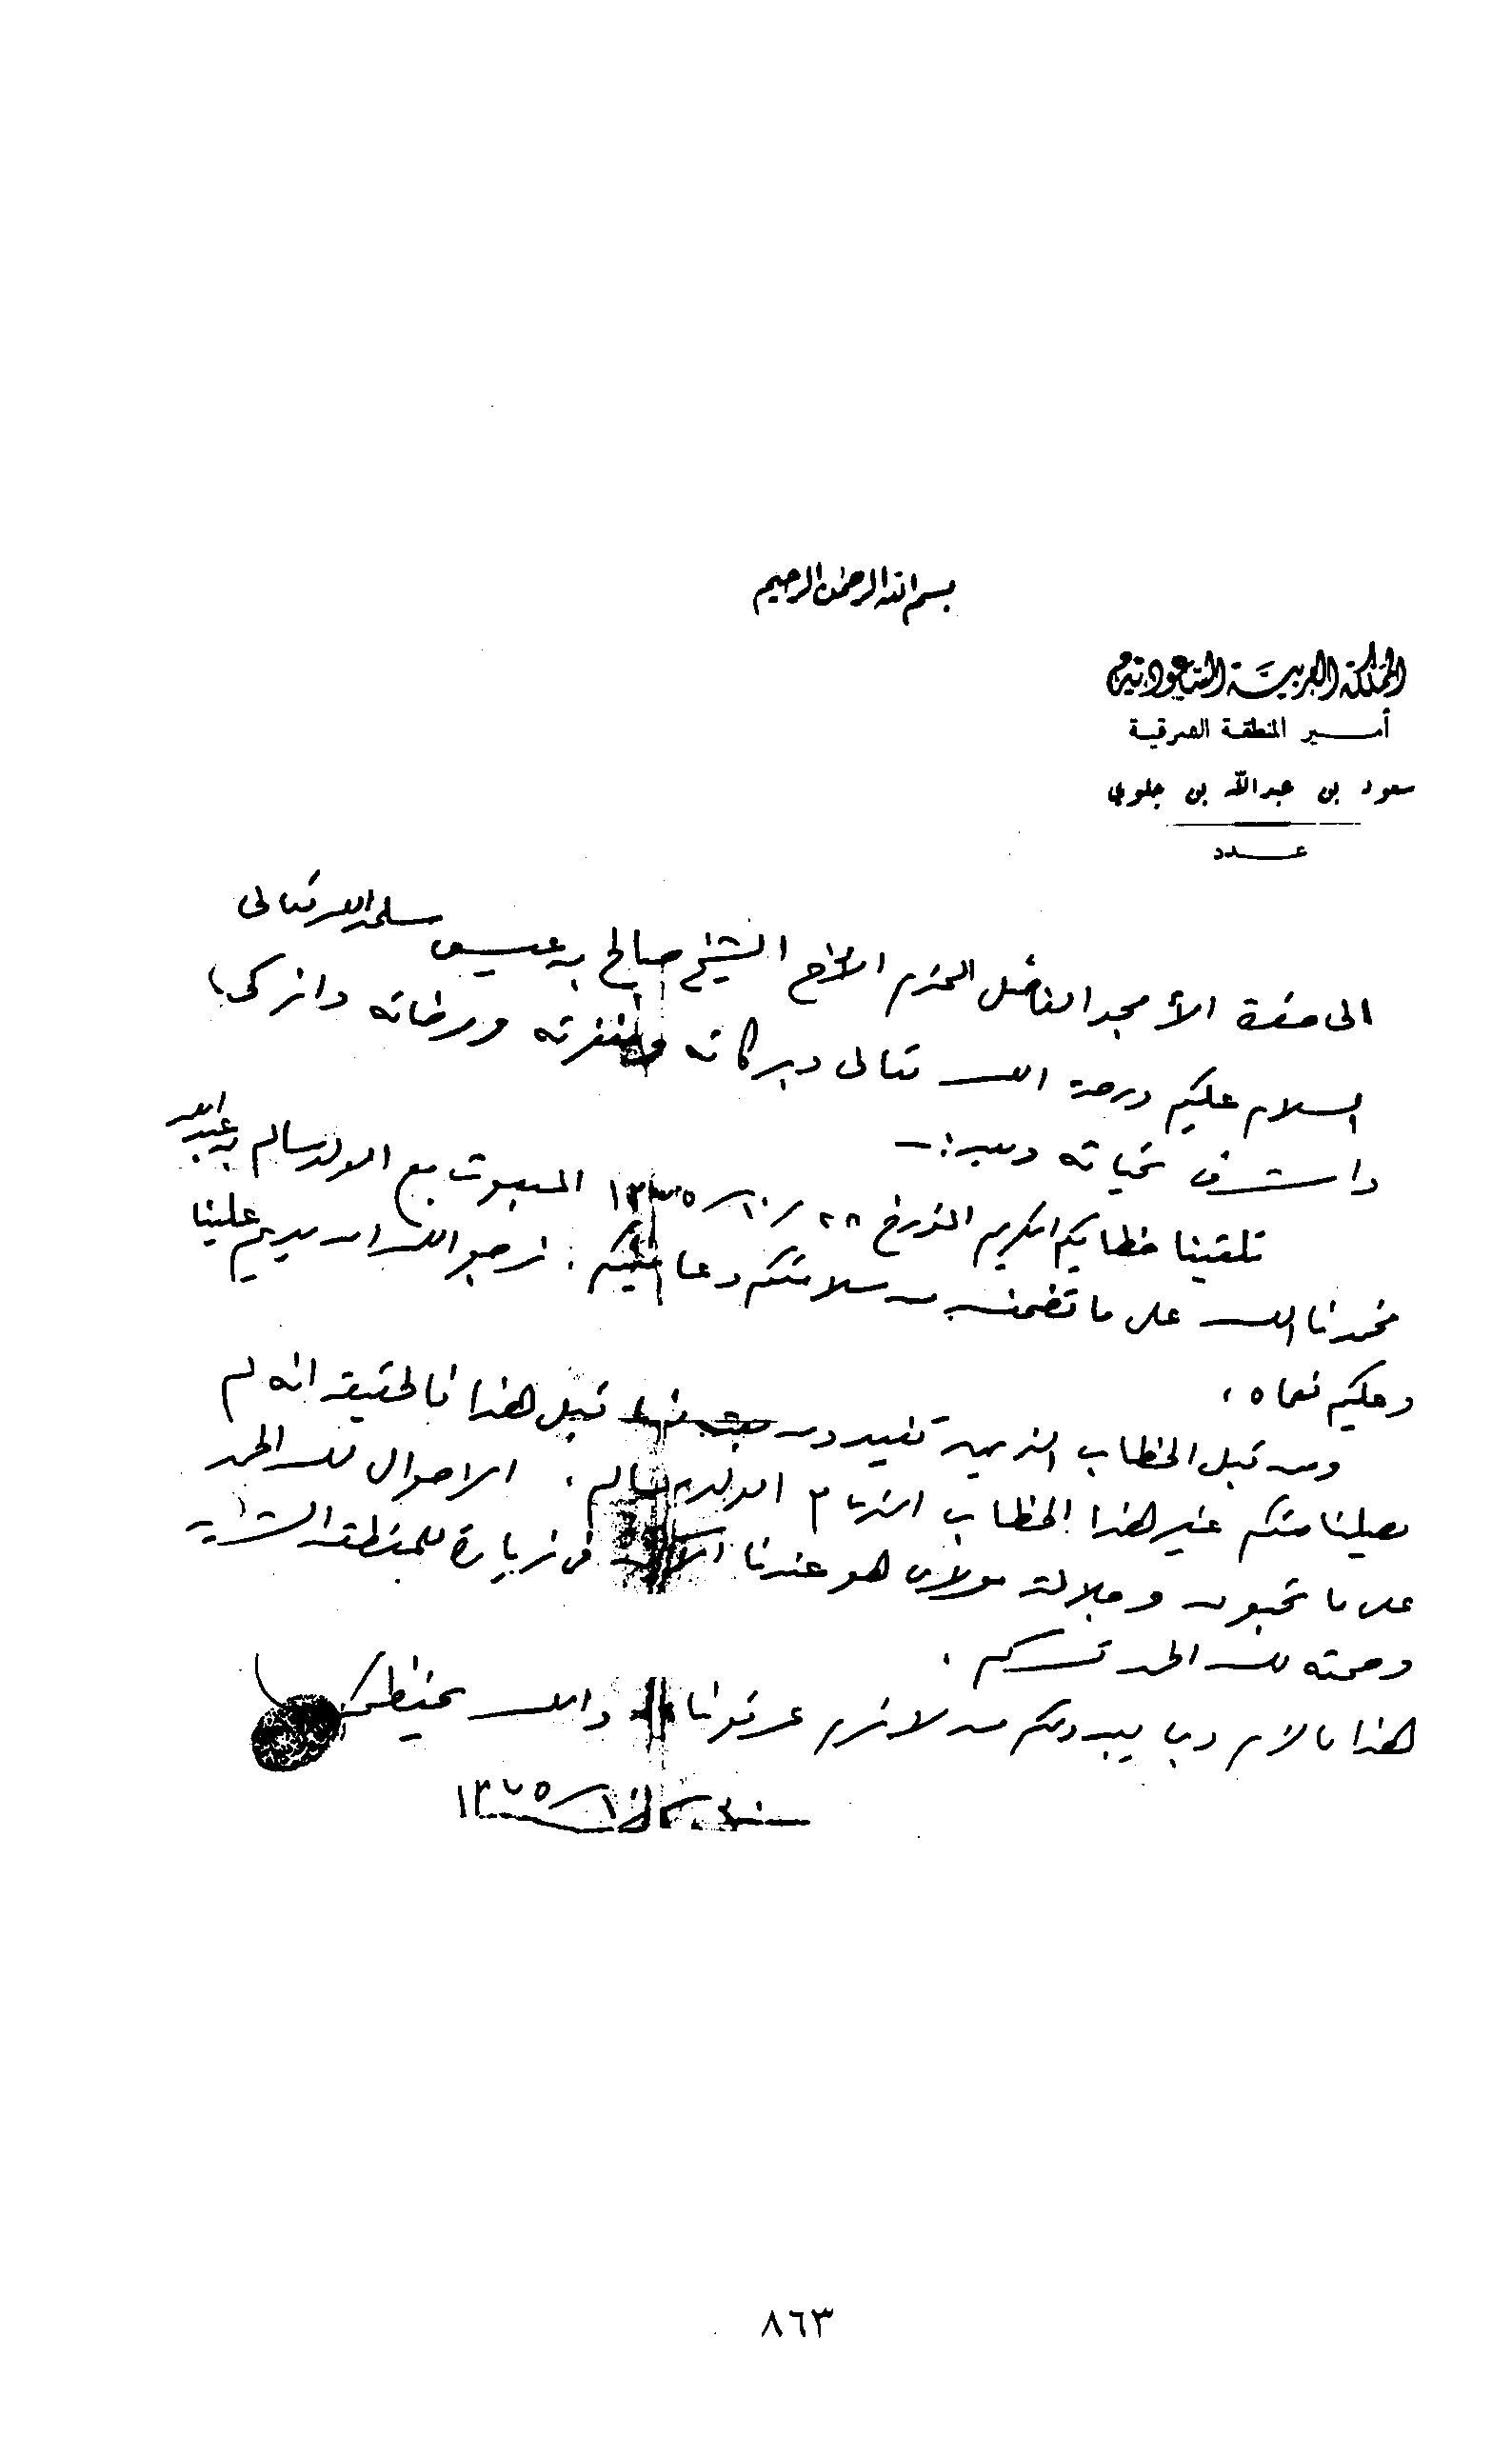 بسم الله الرحمن الرحيم
المملكة العربية السعودية
أمير المنطقة الشرقية
سعود بن عبدالله بن جلوي
عدد
الى حضرة الأمجد الفاضل المحترم الاخ الشيخ صالح بن عيسى سلمه الله تعالى
السلام عليكم ورحمة الله تعالى وبركاته ومغفرته ومرضاته وازكى
واشرف تحياته وبعد :-
تلقينا خطابكم الكريم المؤرخ ٢٨/١٠/١٣٧٥ المبعوث مع الولد سالم بن عبدالله
فحمدنا الله على ما تضمنه من سلامتكم وعافيتكم . نرجو الله ان يديم علينا
وعليكم نعماه ،
ومن قبل الخطاب الذي تفيدون قبل هذا فالحقيقه انه لم
يصلنا منكم غير هذا الخطاب الولد سالم . الاحوال لله الحمد
على ما تحبون وجلالة مولاي هو عندنا الآن في زيارة للمنطقه الشرقيه
وصحته لله الحمد تسركم .
هذا ما لزم وما يبدو لكم من لازم عرفونا والله يحفظكم
١٣٧٥
٨٦٣